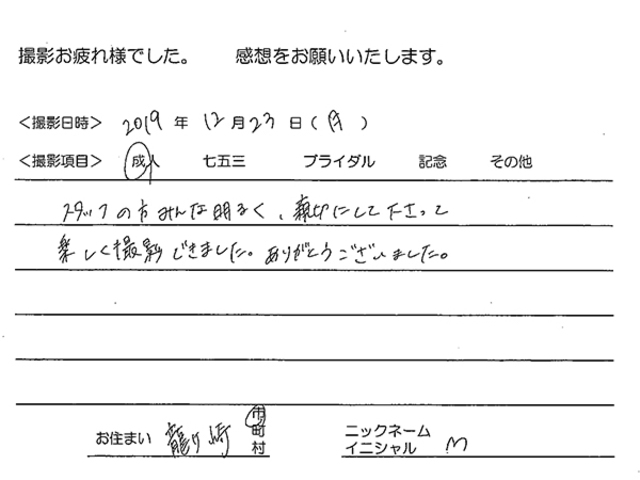 撮影お疲れ様でした。 感想をお願いいたします。
<撮影日時> 2019 年 12 月 23 日 ( 月 )
<撮影項目> 成人 七五三 ブライダル 記念 その他
スタッフの方みんな明るく、親切にして下さって
楽しく撮影できました。ありがとうございました。
お住まい 龍ヶ崎 市 町 村 ニックネーム イニシャル M